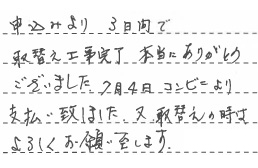 申込みより 3日間で
取替え工事完了 本当にありがとう
ございました 7月4日 コンビニより
支払い致しました. 又 取替えの時は
よろしくお願い致します.